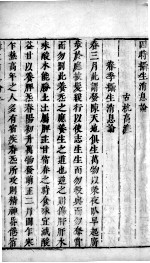 四時攝生消息論
古杭高濂
春季攝生消息論
春三月此謂發陳天地俱生萬物以榮夜臥早起廣
步於庭被髮緩行以使志生生而勿殺與而勿奪賞
而勿罰此養氣之應養生之道也逆之則傷肝肝木
味酸木能勝土土屬脾主甘當春之時食味宜減酸
益甘以養脾氣春陽初升萬物發萌正二月間乍寒
乍熱高年之人多有宿疾春氣所攻則精神昏倦宿